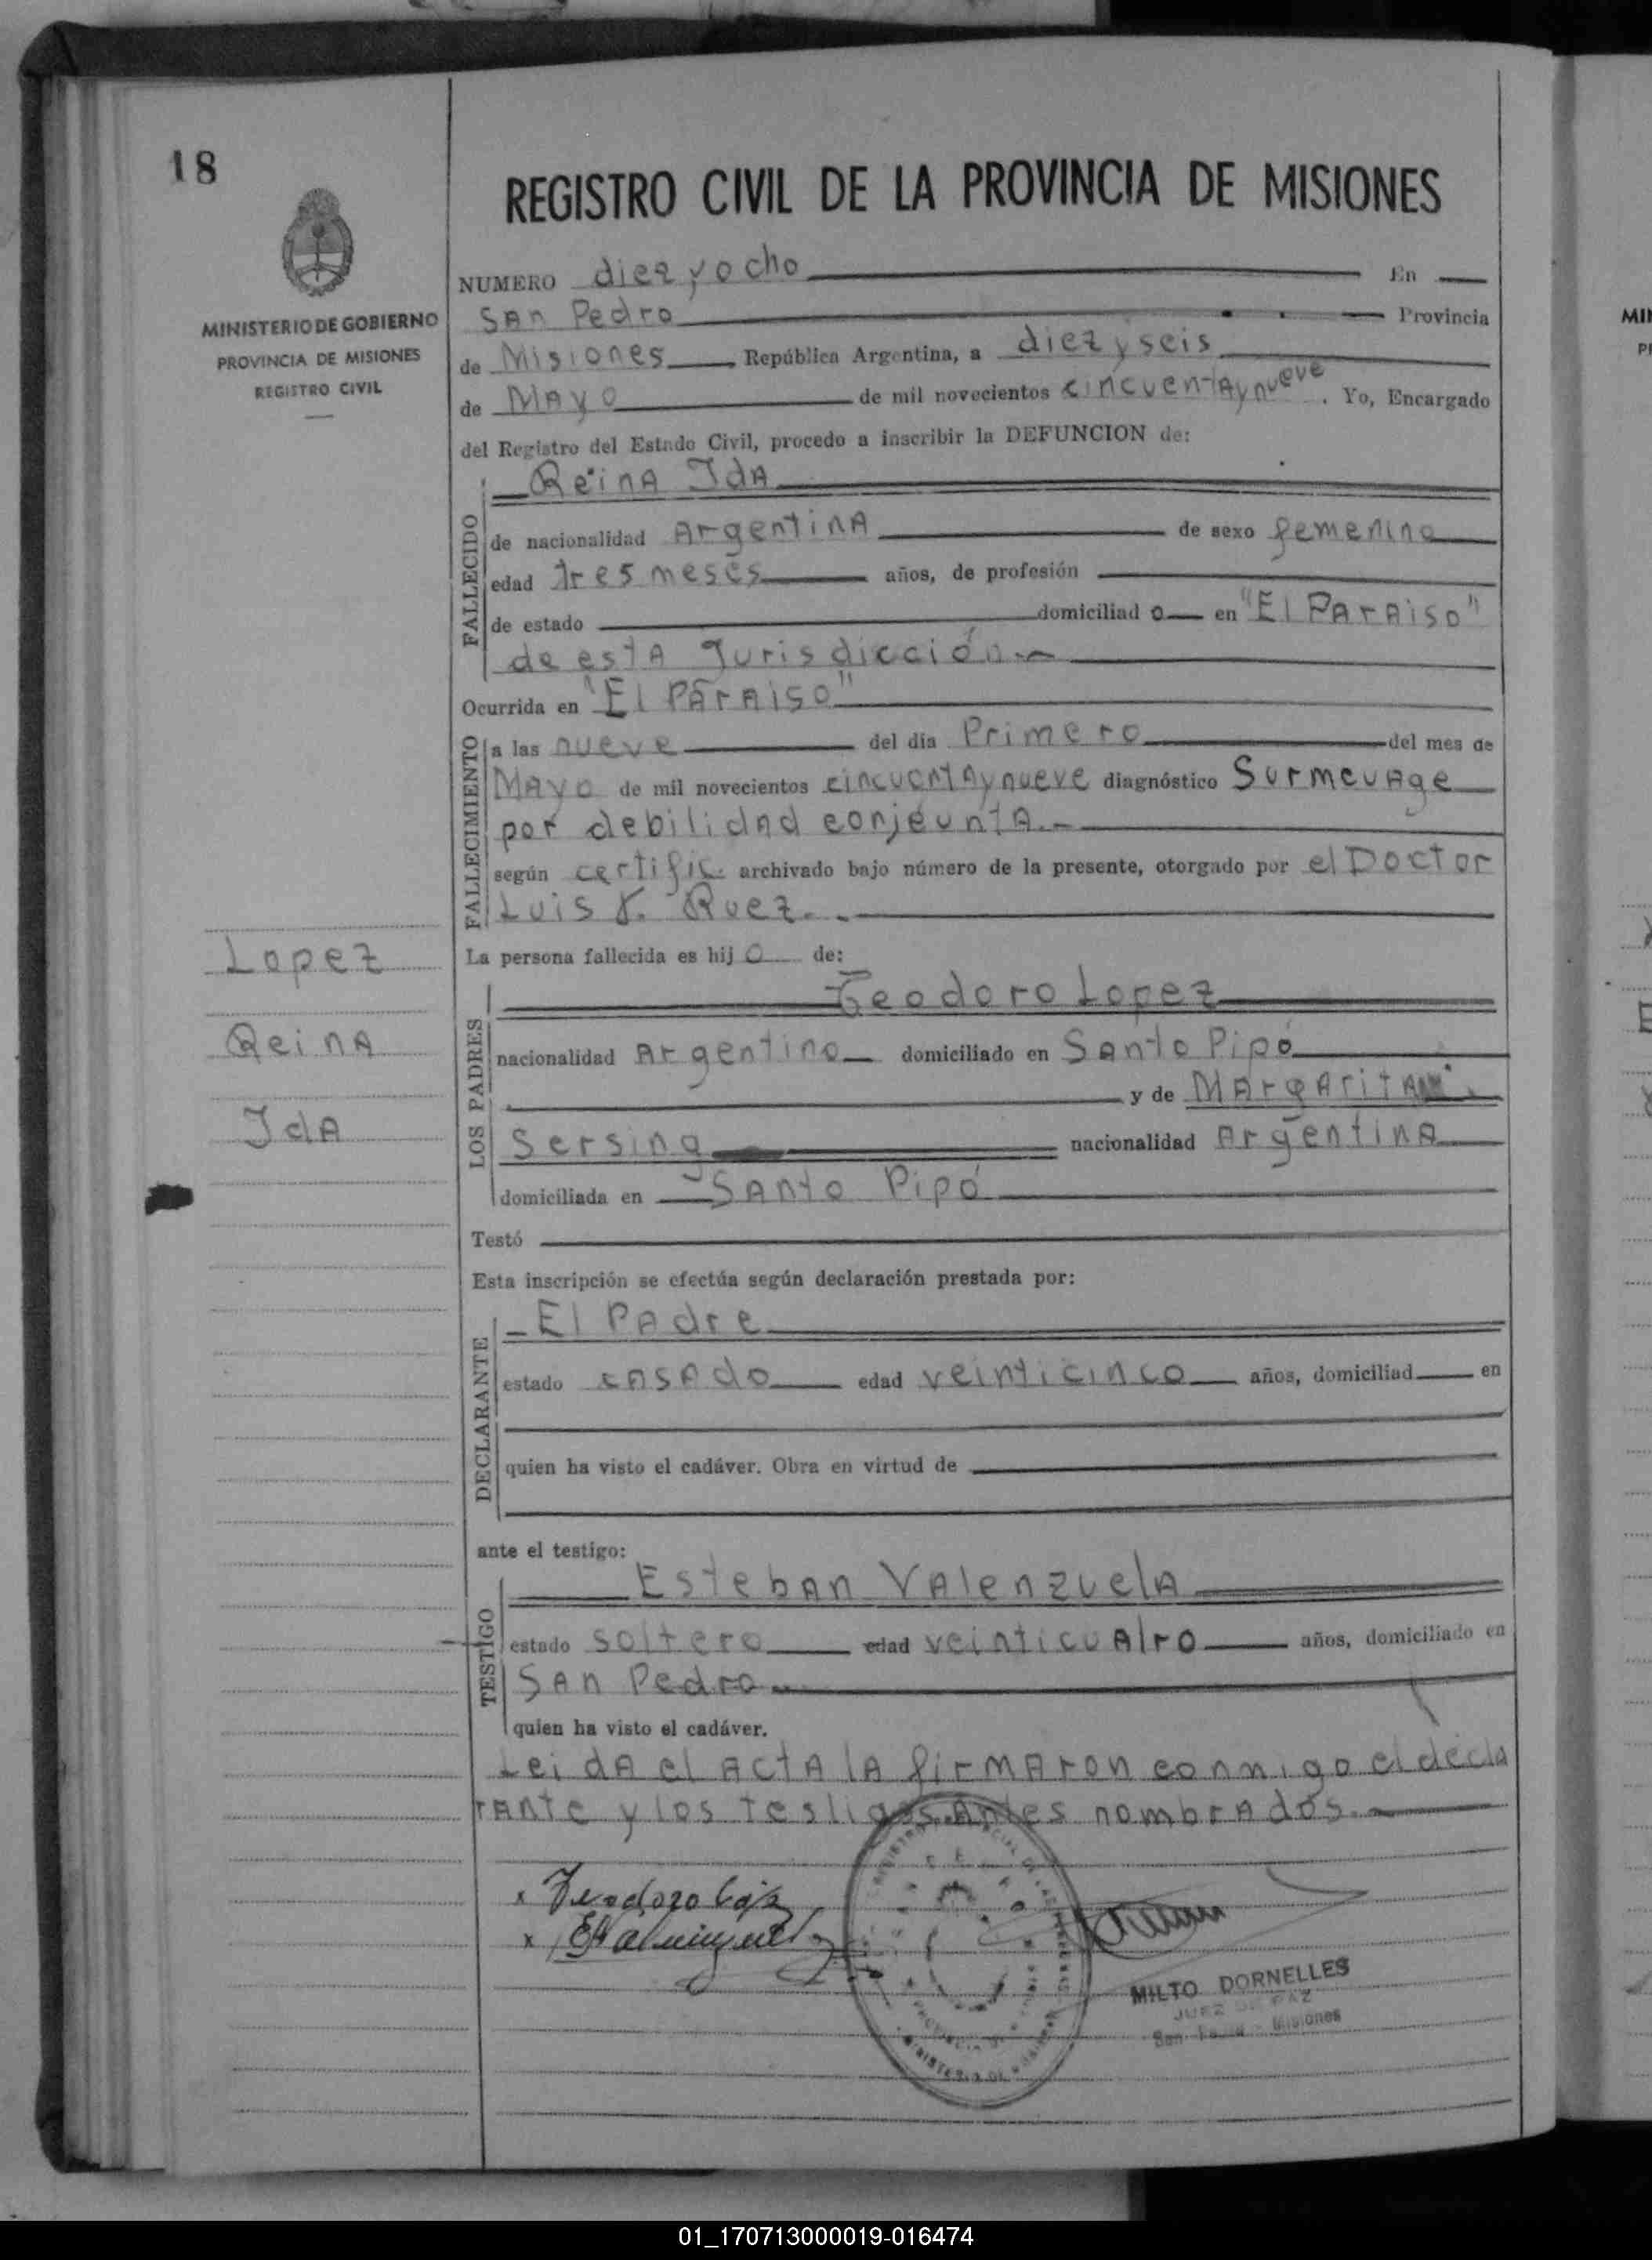 18
REGISTRO CIVIL DE LA PROVINCIA DE MISIONES
MINISTERIO DE GOBIERNO
PROVINCIA DE MISIONES
REGISTRO CIVIL
NUMERO diez y ocho En
San Pedro Provincia
de Misiones República Argentina, a diez y seis
de Mayo de mil novecientos cincuenta y nueve. Yo, Encargado
del Registro del Estado Civil, procedo a inscribir la DEFUNCION de:
Reina Ida
FALLECIDO
de nacionalidad Argentina de sexo femenino
edad tres meses años, de profesión
de estado domiciliad o en "El Paraiso"
de esta Jurisdicción.-
Ocurrida en "El Paraiso"
FALLECIMIENTO
a las nueve del día Primero del mes de
Mayo de mil novecientos cincuenta y nueve diagnóstico Surmeuage
por debilidad conjeunta.-
según certific. archivado bajo número de la presente, otorgado por el Doctor
Luis Ruez.-
La persona fallecida es hij o de:
Lopez
Reina
Ida
LOS PADRES
Teodoro Lopez
nacionalidad Argentino domiciliado en Santo Pipó
y de Margarita
Sersing nacionalidad Argentina
domiciliada en Santo Pipó
Testó
Esta inscripción se efectúa según declaración prestada por:
DECLARANTE
El Padre
estado casado edad veinticinco años, domiciliad en
quien ha visto el cadáver. Obra en virtud de
ante el testigo:
TESTIGO
Esteban Valenzuela
estado soltero edad veinticuatro años, domiciliado en
San Pedro.-
quien ha visto el cadáver.
Leida el acta la firmaron conmigo el decla
rante y los testigos antes nombrados.-
x Teodoro
x
MILTO DORNELLES
JUEZ DE PAZ
San Pedro - Misiones
01_170713000019-016474